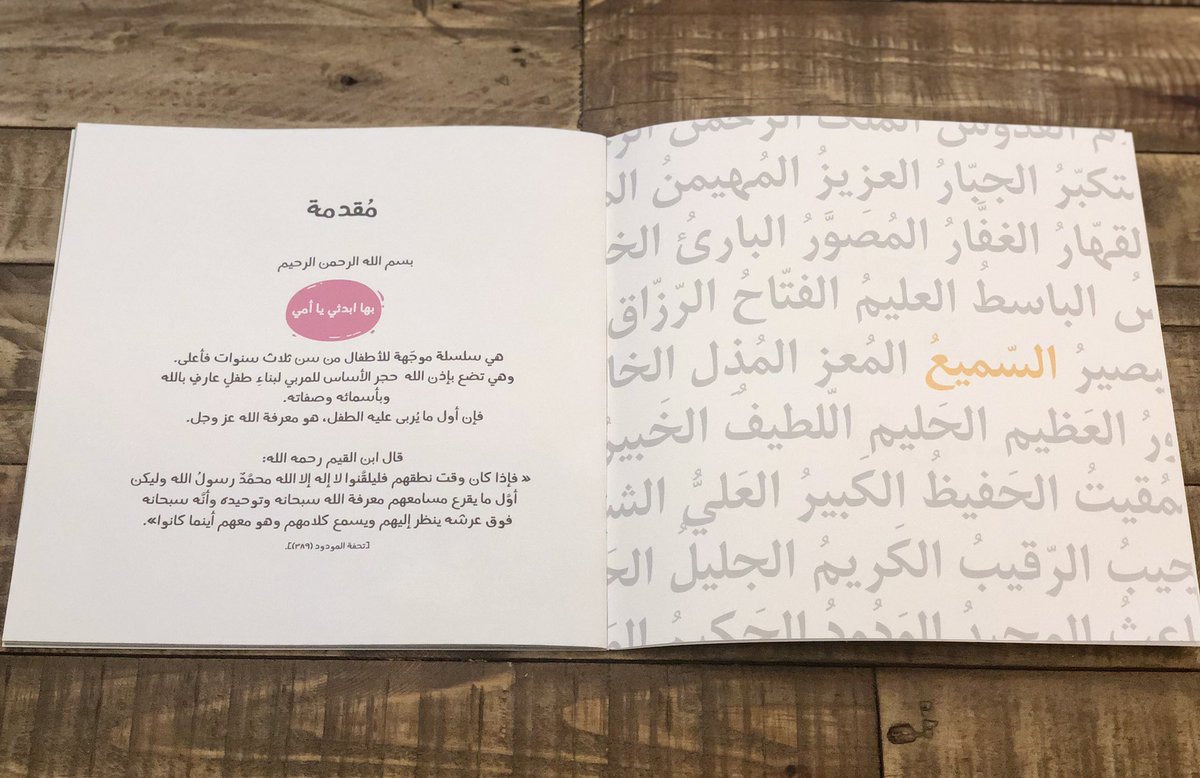 القدوس الملك الرحمن الر
تكبّرُ الجبّارُ العزيزُ المُهيمنُ
لقهّارُ الغفَّارُ المُصَوَّرُ البارئُ الخ
الباسطُ العليمُ الفتّاحُ الرّزّاق
بصيرُ السّميعُ المُعز المُذل الخا
ورُ العَظيم الحَليم اللّطيفُ الخَبيرُ
مُقيتُ الحَفيظُ الكَبيرُ العَليُّ الش
جيبُ الرّقيبُ الكَريمُ الجليلُ الح
اعثُ المجيدُ الوَدُودُ الحَكيمُ
مُقدمة
بسم الله الرحمن الرحيم
بها ابدئي يا أمي
هي سلسلة موجّهة للأطفال من سن ثلاث سنوات فأعلى.
وهي تضع بإذن الله حجر الأساس للمربي لبناءِ طفلٍ عارفٍ بالله
وبأسمائه وصفاته.
فإن أول ما يُربى عليه الطفل، هو معرفة الله عز وجل.
قال ابن القيم رحمه الله:
« فإذا كان وقت نطقهم فليلقَّنوا لا إله إلا الله محمَّدٌ رسولُ الله وليكن
أوَّل ما يقرع مسامعهم معرفة الله سبحانه وتوحيده وأنَّه سبحانه
فوق عرشه ينظر إليهم ويسمع كلامهم وهو معهم أينما كانوا».
[تحفة المودود (٣٨٩)].